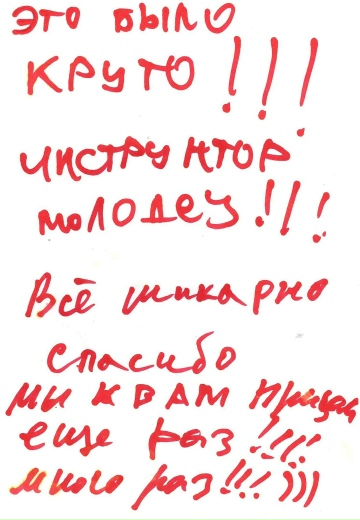 ЭТО БЫЛО
КРУТО!!!
ИНСТРУКТОР
МОЛОДЕЦ!!!
Всё шикарно
Спасибо
МЫ К ВАМ
еще раз!!!
много раз!!! )))